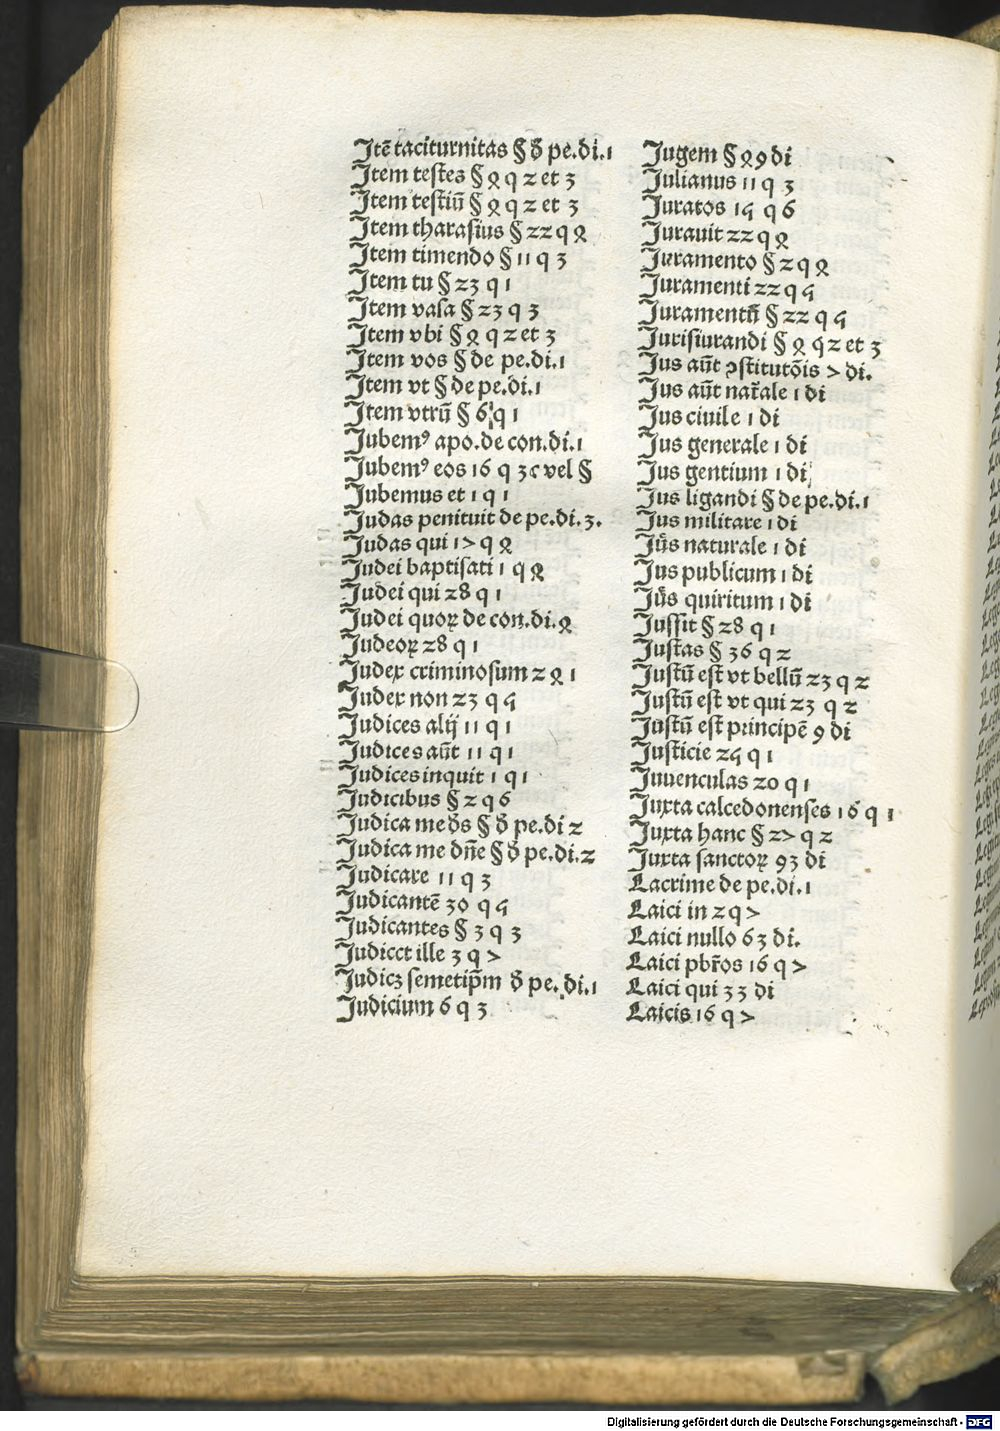 Itē taciturnitas § đ pe.di.1
Item testes § 4 q 2 et 3
Item testiū § 4 q 2 et 3
Item tharasius § 22 q 4
Item timendo § 11 q 3
Item tu § 23 q 1
Item vasa § 23 q 3
Item vbi § 4 q 2 et 3
Item vos § de pe.di.1
Item vt § de pe.di.1
Item vtrū § 6 q 1
Jubemꝰ apo.de con.di.1
Jubemꝰ eos 16 q 3 c vel §
Jubemus et 1 q 1
Judas penituit de pe.di.3.
Judas qui 17 q 4
Judei baptisati 1 q 4
Judei qui 28 q 1
Judei quoꝝ de con.di.4
Judeoꝝ 28 q 1
Judex criminosum 2 q 1
Judex non 23 q 5
Judices alij 11 q 1
Judices aūt 11 q 1
Judices inquit 1 q 1
Judicibus § 2 q 6
Judica me đs § đ pe.di 2
Judica me dn̄e § đ pe.di.2
Judicare 11 q 3
Judicantē 30 q 5
Judicantes § 3 q 3
Judicet ille 3 q 7
Judicꝫ semetip̄m đ pe.di.1
Judicium 6 q 3
Jugem § 49 di
Julianus 11 q 3
Juratos 15 q 6
Jurauit 22 q 4
Juramento § 2 q 4
Juramenti 22 q 5
Juramentū § 22 q 5
Jurisiurandi § 4 q 2 et 3
Jus aūt ꝯstitutōis 7 di.
Jus aūt nat̄ale 1 di
Jus ciuile 1 di
Jus generale 1 di
Jus gentium 1 di
Jus ligandi § de pe.di.1
Jus militare 1 di
Jus naturale 1 di
Jus publicum 1 di
Jus quiritum 1 di
Jussit § 28 q 1
Justas § 36 q 2
Justū est vt bellū 23 q 2
Justū est vt qui 23 q 2
Justū est principē 9 di
Justicie 25 q 1
Juuenculas 20 q 1
Juxta calcedonenses 16 q 1
Juxta hanc § 27 q 2
Juxta sanctoꝝ 93 di
Lacrime de pe.di.1
Laici in 2 q 7
Laici nullo 63 di.
Laici pb̄ros 16 q 7
Laici qui 33 di
Laicis 16 q 7
Digitalisierung gefördert durch die Deutsche Forschungsgemeinschaft - DFG